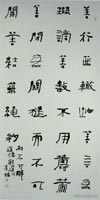 善行無轍迹善言無
瑕謫善數不用籌策
善閉無關楗而不可
開善結無繩約
而不可解